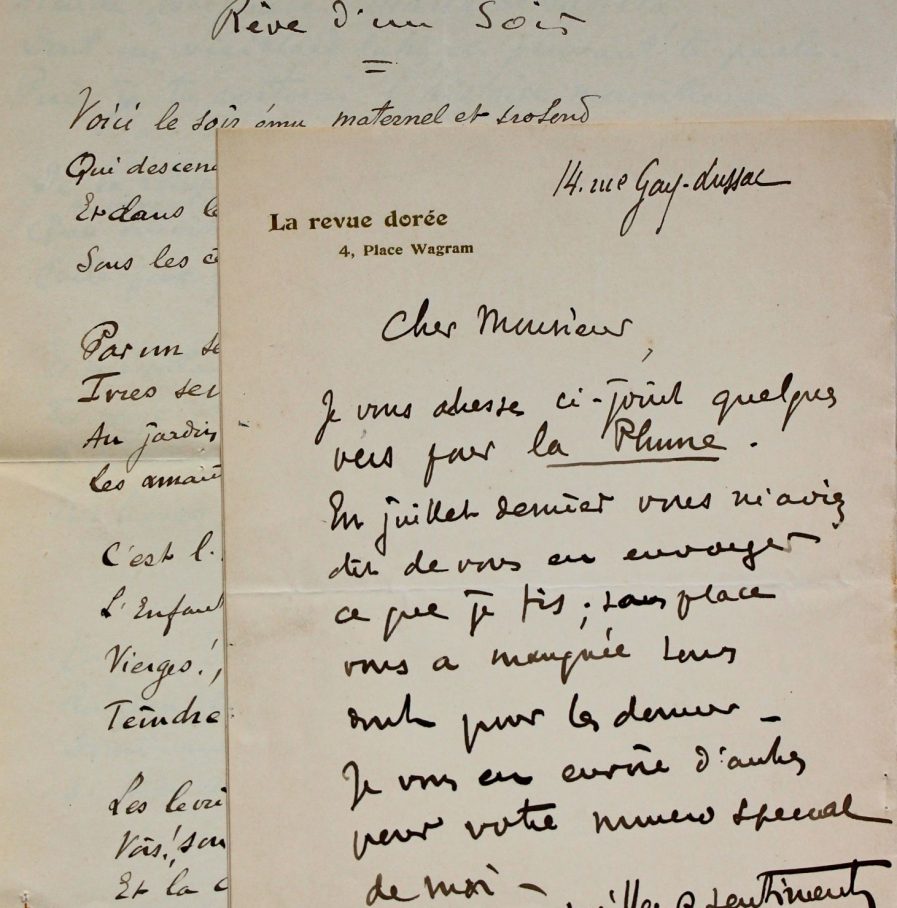 Rêve d'un Soir
Voici le soir ému maternel et profond
Qui descen
Et dans l
Sous les
Par un se
Ivres
Au jardin
Les aman
C'est l
L'Enfant
Vierges!,
Teindre
Les
Vois!
Et la
14. rue Gay-Lussac
La revue dorée
4, Place Wagram
Cher Monsieur,
Je vous adresse ci-joint quelques
vers pour la Plume.
En juillet dernier vous m'aviez
dit de vous en envoyer
ce que je fis; la place
vous a manquée sans
doute pour les donner _
Je vous en envoie d'autres
pour votre numero special
de mai - sentiments